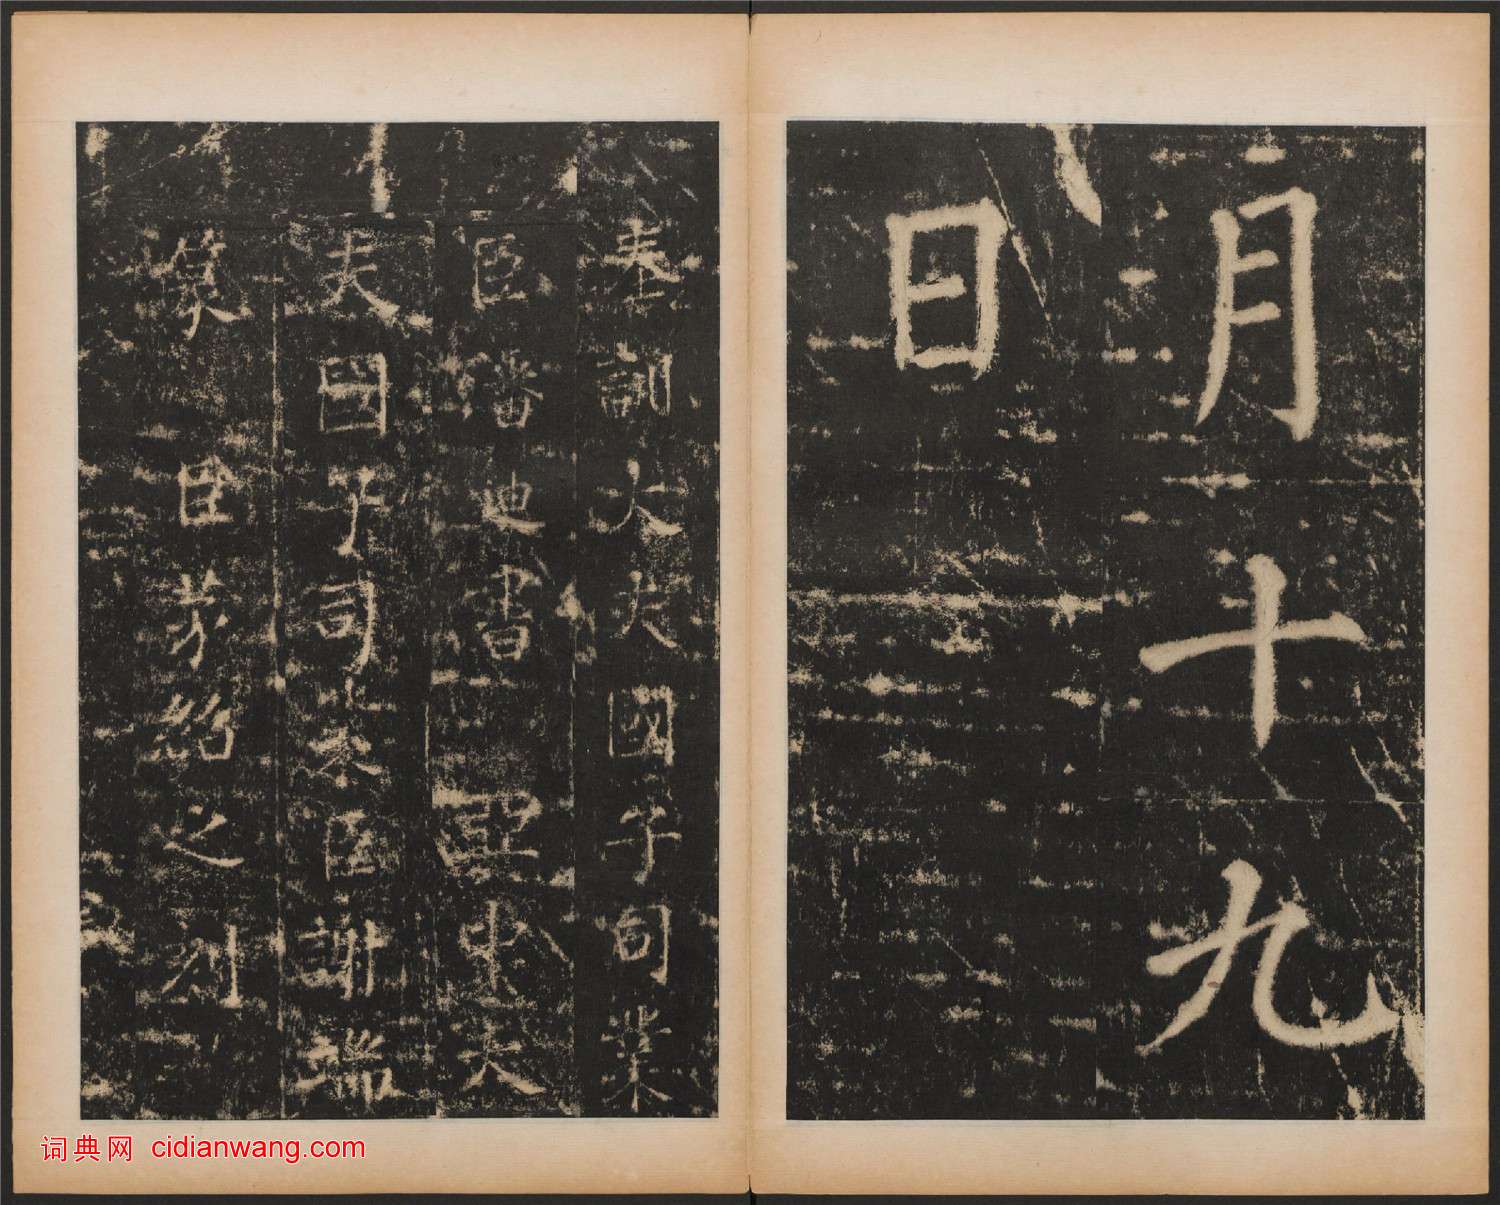 月十九
日
奉訓大夫國子司業
臣潘迪書
史夫
夫國子司
臣謝端
篆臣茅紹之刻
词典网 cidianwang.com